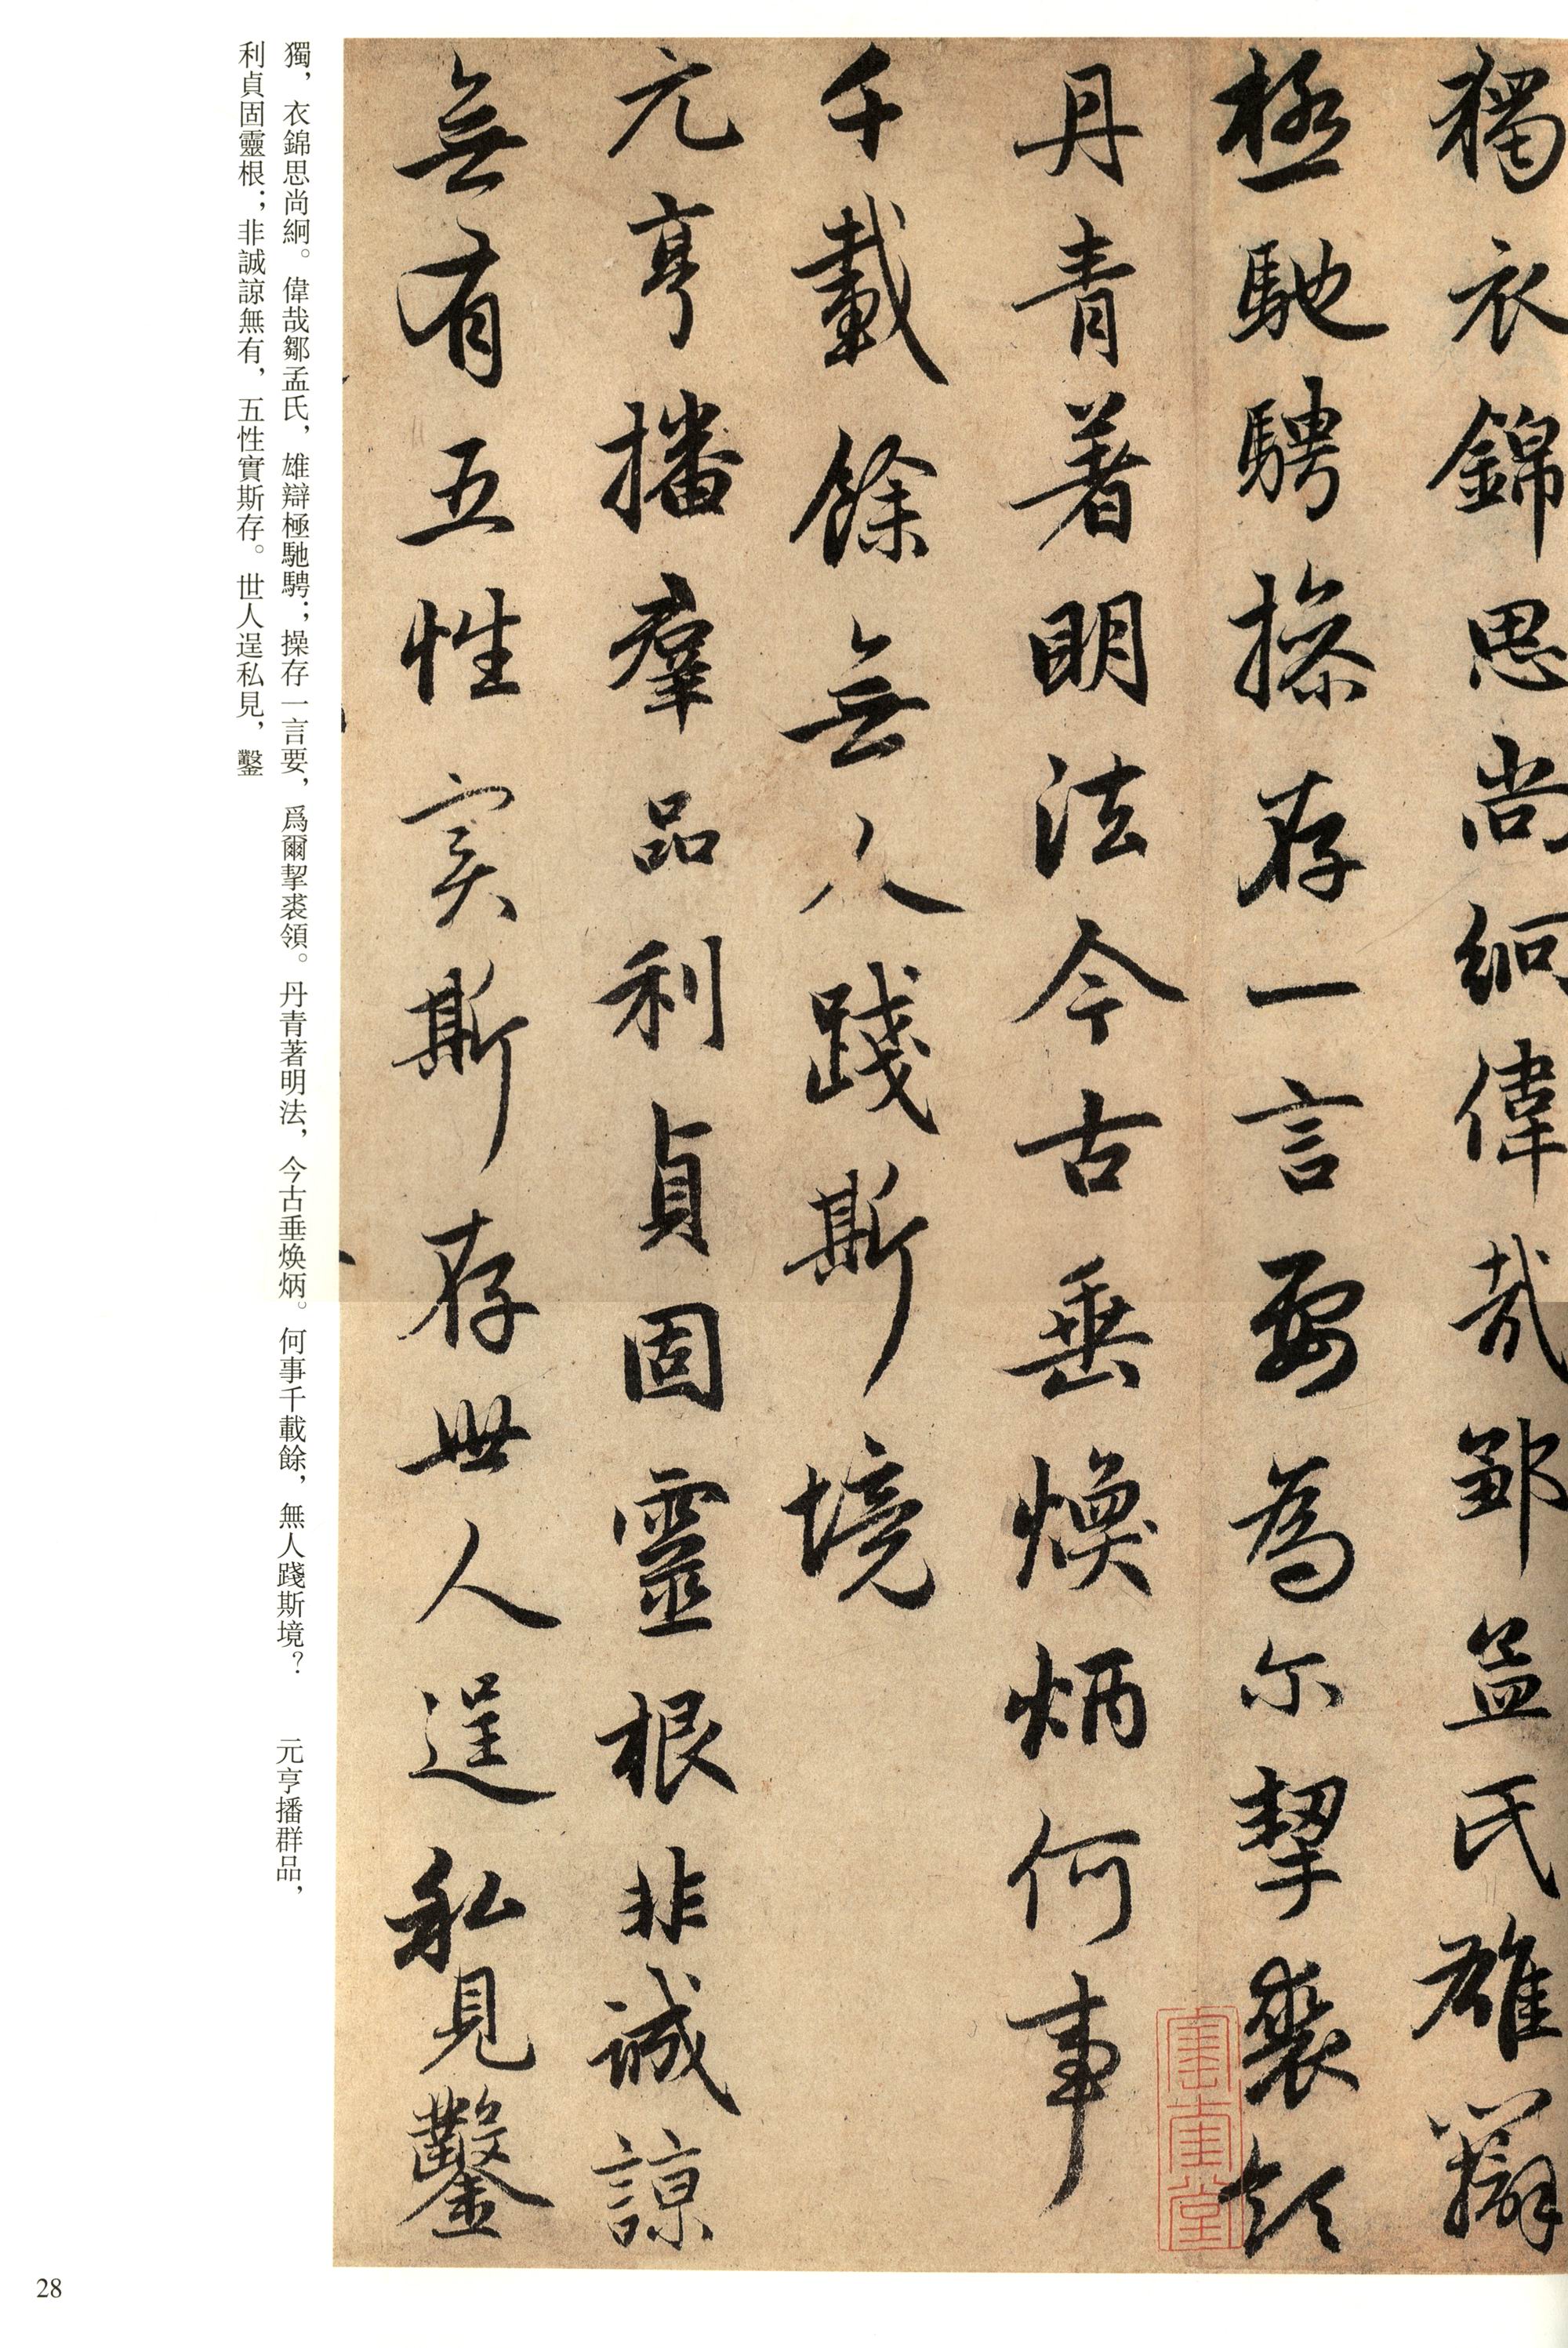 獨衣錦思尚絅偉哉鄒孟氏雄辯
極馳騁操存一言要為尔挈裘領
丹青著明法今古垂煥炳何事
千載餘無人踐斯境
元亨播羣品利貞固靈根非誠諒
無有五性实斯存世人逞私見鑿
獨，衣錦思尚絅。偉哉鄒孟氏，雄辯極馳騁；操存一言要，爲爾挈裘領。丹青著明法，今古垂焕炳。何事千載餘，無人踐斯境？　元亨播群品，
利貞固靈根；非誠諒無有，五性實斯存。世人逞私見，鑿
28